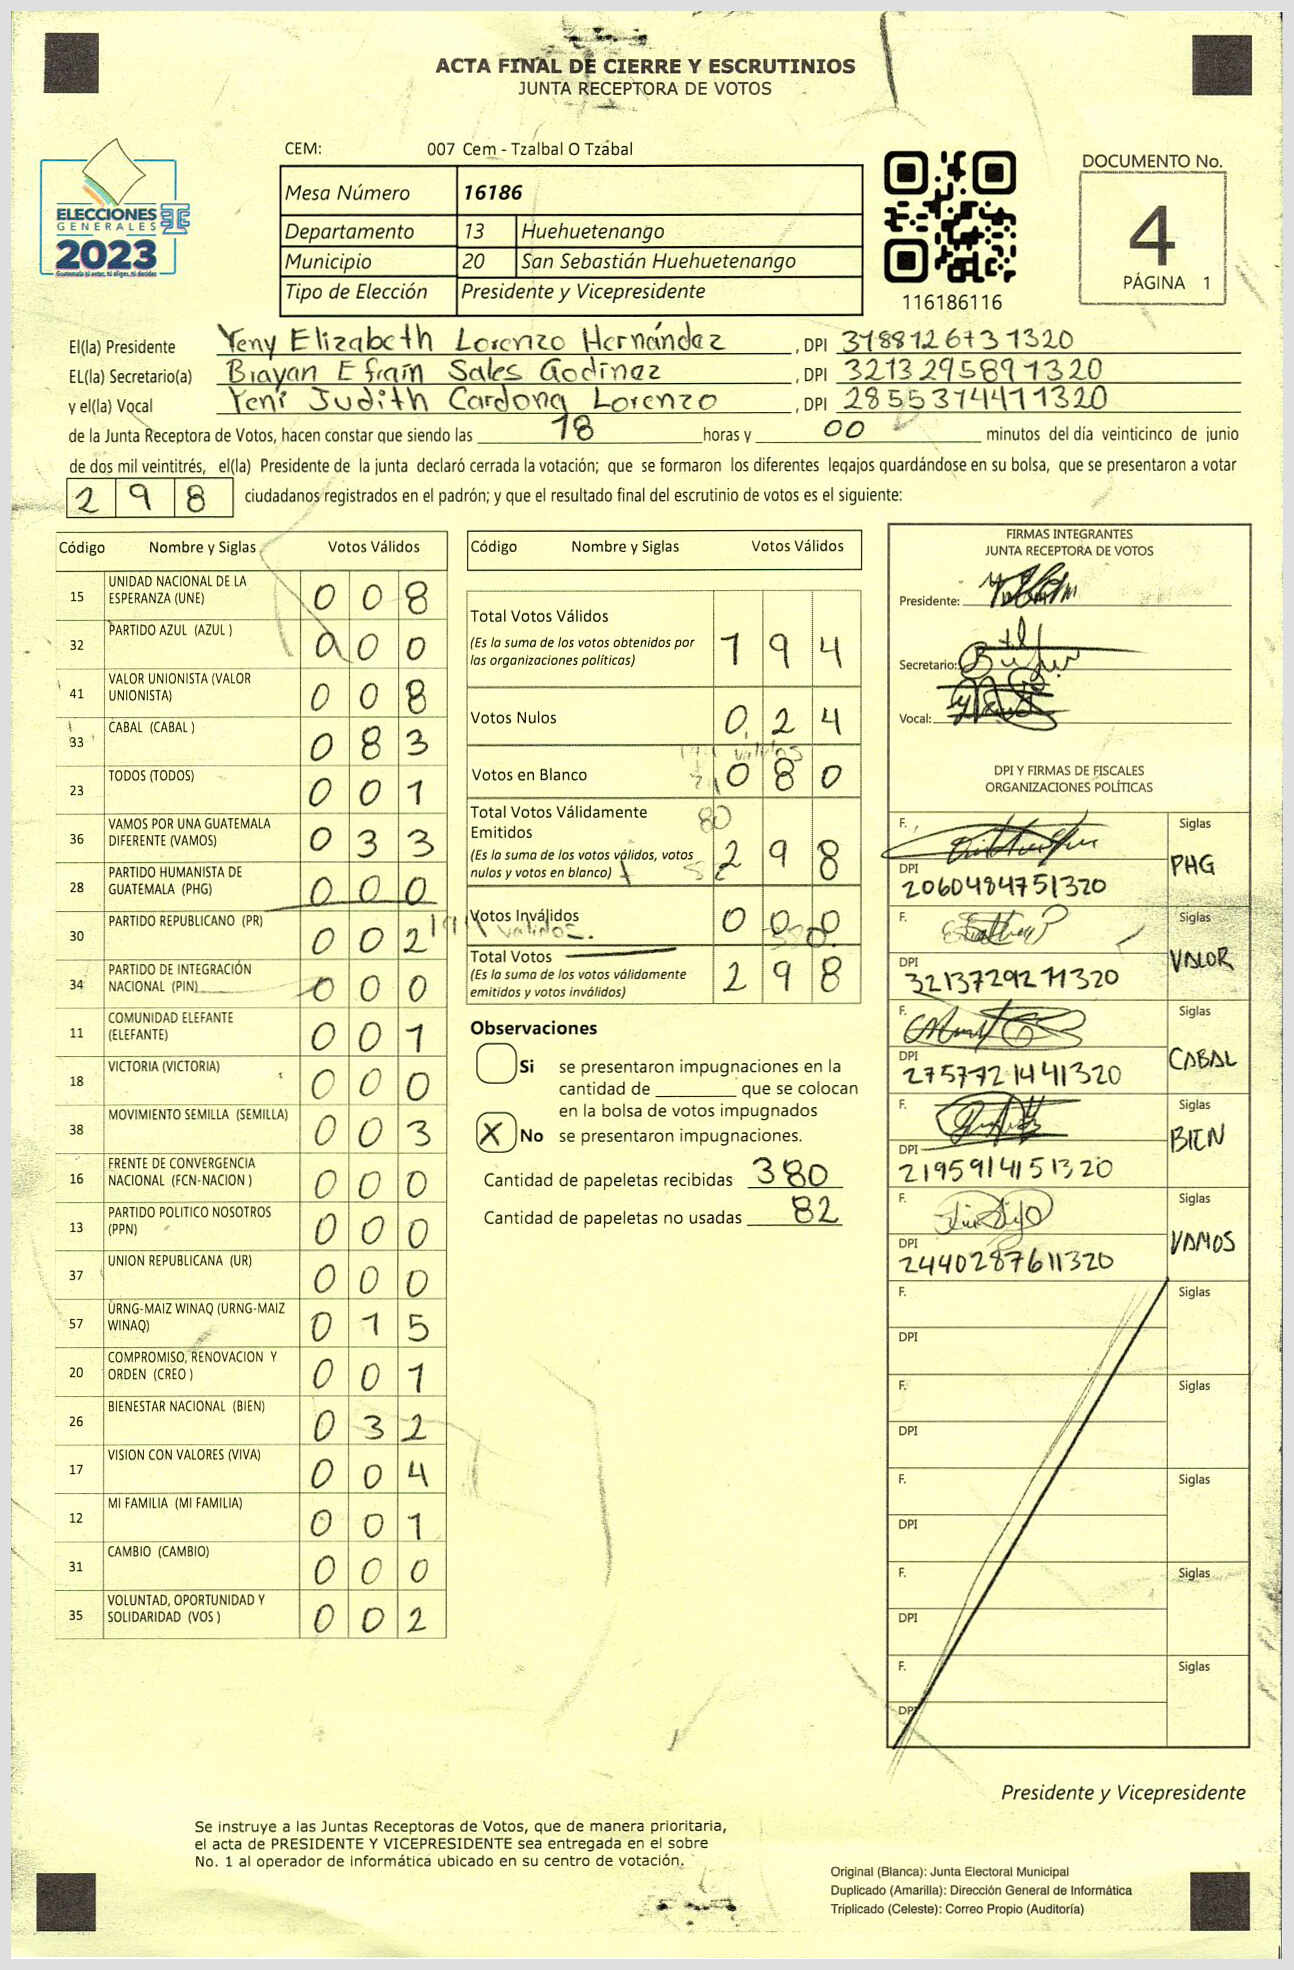 ACTA FINAL DE CIERRE Y ESCRUTINIOS
JUNTA RECEPTORA DE VOTOS
CEM: 007 Cem - Tzalbal O Tzabal
ELECCIONES
GENERALES
2023
Mesa Número 16186
Departamento 13 Huehuetenango
Municipio 20 San Sebastián Huehuetenango
Tipo de Elección Presidente y Vicepresidente
116186116
DOCUMENTO No.
4
PÁGINA 1
El(la) Presidente Yeny Elizabeth Lorenzo Hernández , DPI 3188126731320
EL(la) Secretario(a) Brayan Efraín Sales Godinez , DPI 3213295891320
y el(la) Vocal Yeni Judith Cardona Lorenzo , DPI 2855374471320
de la Junta Receptora de Votos, hacen constar que siendo las 18 horas y 00 minutos del día veinticinco de junio
de dos mil veintitrés, el(la) Presidente de la junta declaró cerrada la votación; que se formaron los diferentes legajos guardándose en su bolsa, que se presentaron a votar
298 ciudadanos registrados en el padrón; y que el resultado final del escrutinio de votos es el siguiente:
Código Nombre y Siglas Votos Válidos
15 UNIDAD NACIONAL DE LA ESPERANZA (UNE) 008
32 PARTIDO AZUL (AZUL ) 000
41 VALOR UNIONISTA (VALOR UNIONISTA) 008
33 CABAL (CABAL ) 083
23 TODOS (TODOS) 001
36 VAMOS POR UNA GUATEMALA DIFERENTE (VAMOS) 033
28 PARTIDO HUMANISTA DE GUATEMALA (PHG) 000
30 PARTIDO REPUBLICANO (PR) 002
34 PARTIDO DE INTEGRACIÓN NACIONAL (PIN) 000
11 COMUNIDAD ELEFANTE (ELEFANTE) 001
18 VICTORIA (VICTORIA) 000
38 MOVIMIENTO SEMILLA (SEMILLA) 003
16 FRENTE DE CONVERGENCIA NACIONAL (FCN-NACION ) 000
13 PARTIDO POLITICO NOSOTROS (PPN) 000
37 UNION REPUBLICANA (UR) 000
57 URNG-MAIZ WINAQ (URNG-MAIZ WINAQ) 015
20 COMPROMISO, RENOVACION Y ORDEN (CREO ) 001
26 BIENESTAR NACIONAL (BIEN) 032
17 VISION CON VALORES (VIVA) 004
12 MI FAMILIA (MI FAMILIA) 001
31 CAMBIO (CAMBIO) 000
35 VOLUNTAD, OPORTUNIDAD Y SOLIDARIDAD (VOS ) 002
Código Nombre y Siglas Votos Válidos
Total Votos Válidos 194
(Es la suma de los votos obtenidos por
las organizaciones políticas)
Votos Nulos 024
validos
Votos en Blanco 080
80
Total Votos Válidamente
Emitidos 298
(Es la suma de los votos válidos, votos
nulos y votos en blanco)
Votos Inválidos 000
validos.
Total Votos 298
(Es la suma de los votos válidamente
emitidos y votos inválidos)
Observaciones
Si se presentaron impugnaciones en la
cantidad de ________ que se colocan
en la bolsa de votos impugnados
X No se presentaron impugnaciones.
Cantidad de papeletas recibidas 380
Cantidad de papeletas no usadas 82
FIRMAS INTEGRANTES
JUNTA RECEPTORA DE VOTOS
Presidente:
Secretario:
Vocal:
DPI Y FIRMAS DE FISCALES
ORGANIZACIONES POLÍTICAS
F. Siglas
PHG
DPI
2060484751320
F. Siglas
VALOR
DPI
3213729271320
F. Siglas
CABAL
DPI
2757721441320
F. Siglas
BIEN
DPI
2195914151320
F. Siglas
VAMOS
DPI
2440287611320
F. Siglas
DPI
F. Siglas
DPI
F. Siglas
DPI
F. Siglas
DPI
F. Siglas
DPI
Presidente y Vicepresidente
Se instruye a las Juntas Receptoras de Votos, que de manera prioritaria,
el acta de PRESIDENTE Y VICEPRESIDENTE sea entregada en el sobre
No. 1 al operador de informática ubicado en su centro de votación.
Original (Blanca): Junta Electoral Municipal
Duplicado (Amarilla): Dirección General de Informática
Triplicado (Celeste): Correo Propio (Auditoría)